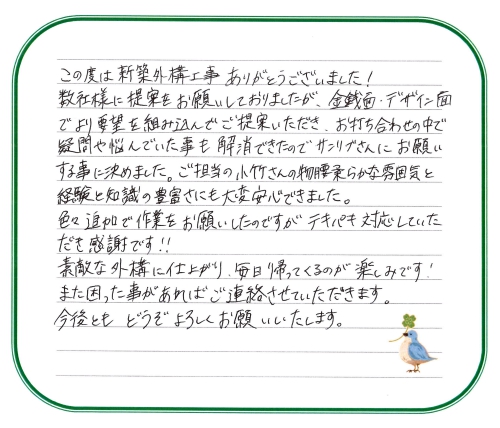 この度は新築外構工事 ありがとうございました!
数社様に提案をお願いしておりましたが、金銭面・デザイン面
でより要望を組み込んでご提案いただき、お打ち合わせの中で
疑問や悩んでいた事も解消できたのでサンリブさんにお願い
する事に決めました。ご担当の小竹さんの物腰柔らかな雰囲気と
経験と知識の豊富さにも大変安心できました。
色々追加で作業をお願いしたのですがテキパキ対応していた
だき感謝です!!
素敵な外構に仕上がり、毎日帰ってくるのが楽しみです!
また困った事があればご連絡させていただきます。
今後とも どうぞよろしくお願いいたします。